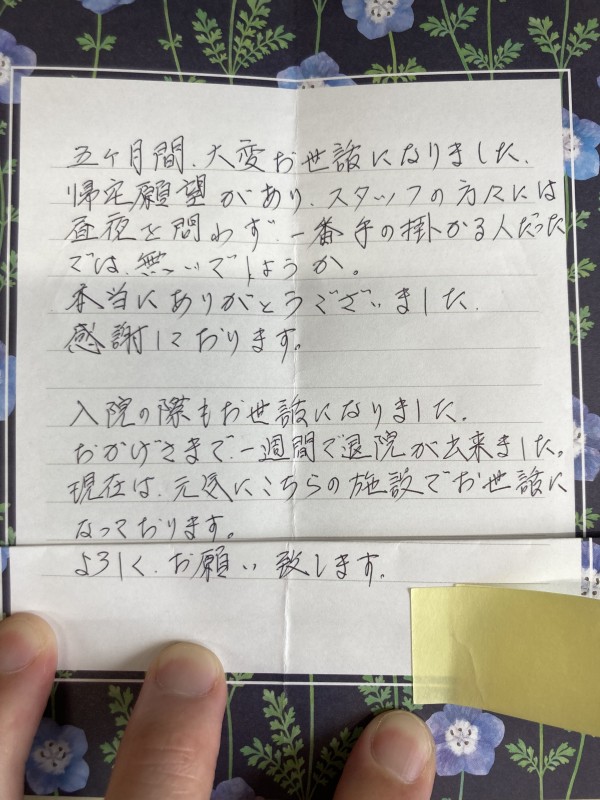 五ヶ月間、大変お世話になりました、
帰宅願望があり、スタッフの方々には
昼夜を問わず、一番手の掛かる人だった
では、無いでしょうか。
本当にありがとうございました、
感謝しております。
入院の際もお世話になりました。
おかげさまで、一週間で退院が出来ました。
現在は、元気にこちらの施設でお世話に
なっております。
よろしく、お願い致します。